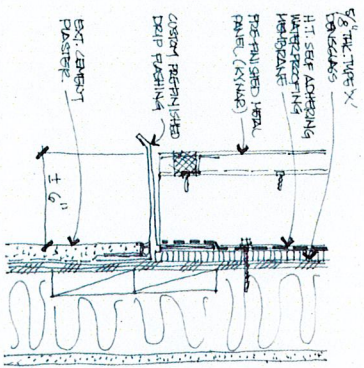 5/8" THK. TYPE X
DENSGLASS
H.T. SELF ADHERING
WATERPROOFING
MEMBRANE
PRE-FINISHED METAL
PANEL (KYNAR)
CUSTOM PRE-FINISHED
DRIP FLASHING
± 6"
EXT. CEMENT
PLASTER